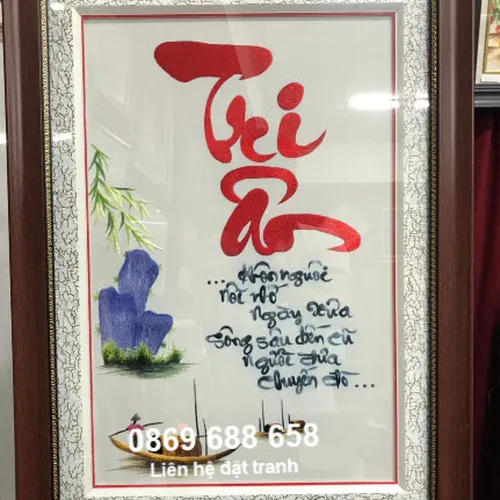 Tri
Ân
...Hồn người
nơi đó
ngày xưa
sông sâu bến cũ
người đưa
chuyến đò...
0869 688 658
Liên hệ đặt tranh